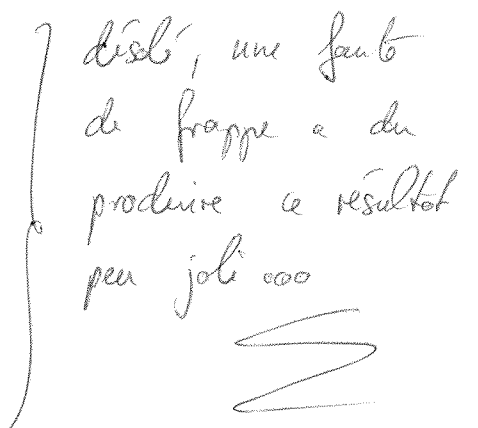 désolé, une faute
de frappe a du
produire ce résultat
peu joli ...